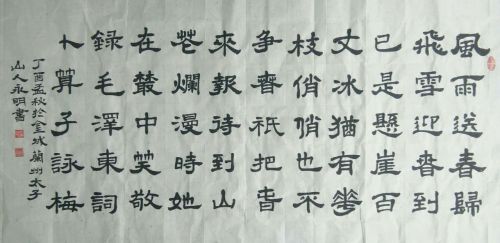 風雨送春歸
飛雪迎春到
已是懸崖百
丈冰猶有華
枝俏俏也不
争春衹把春
來報待到山
花爛漫時她
在叢中笑敬
録毛澤東詞
卜算子詠梅
丁酉孟秋於金城蘭州太子
山人永明書